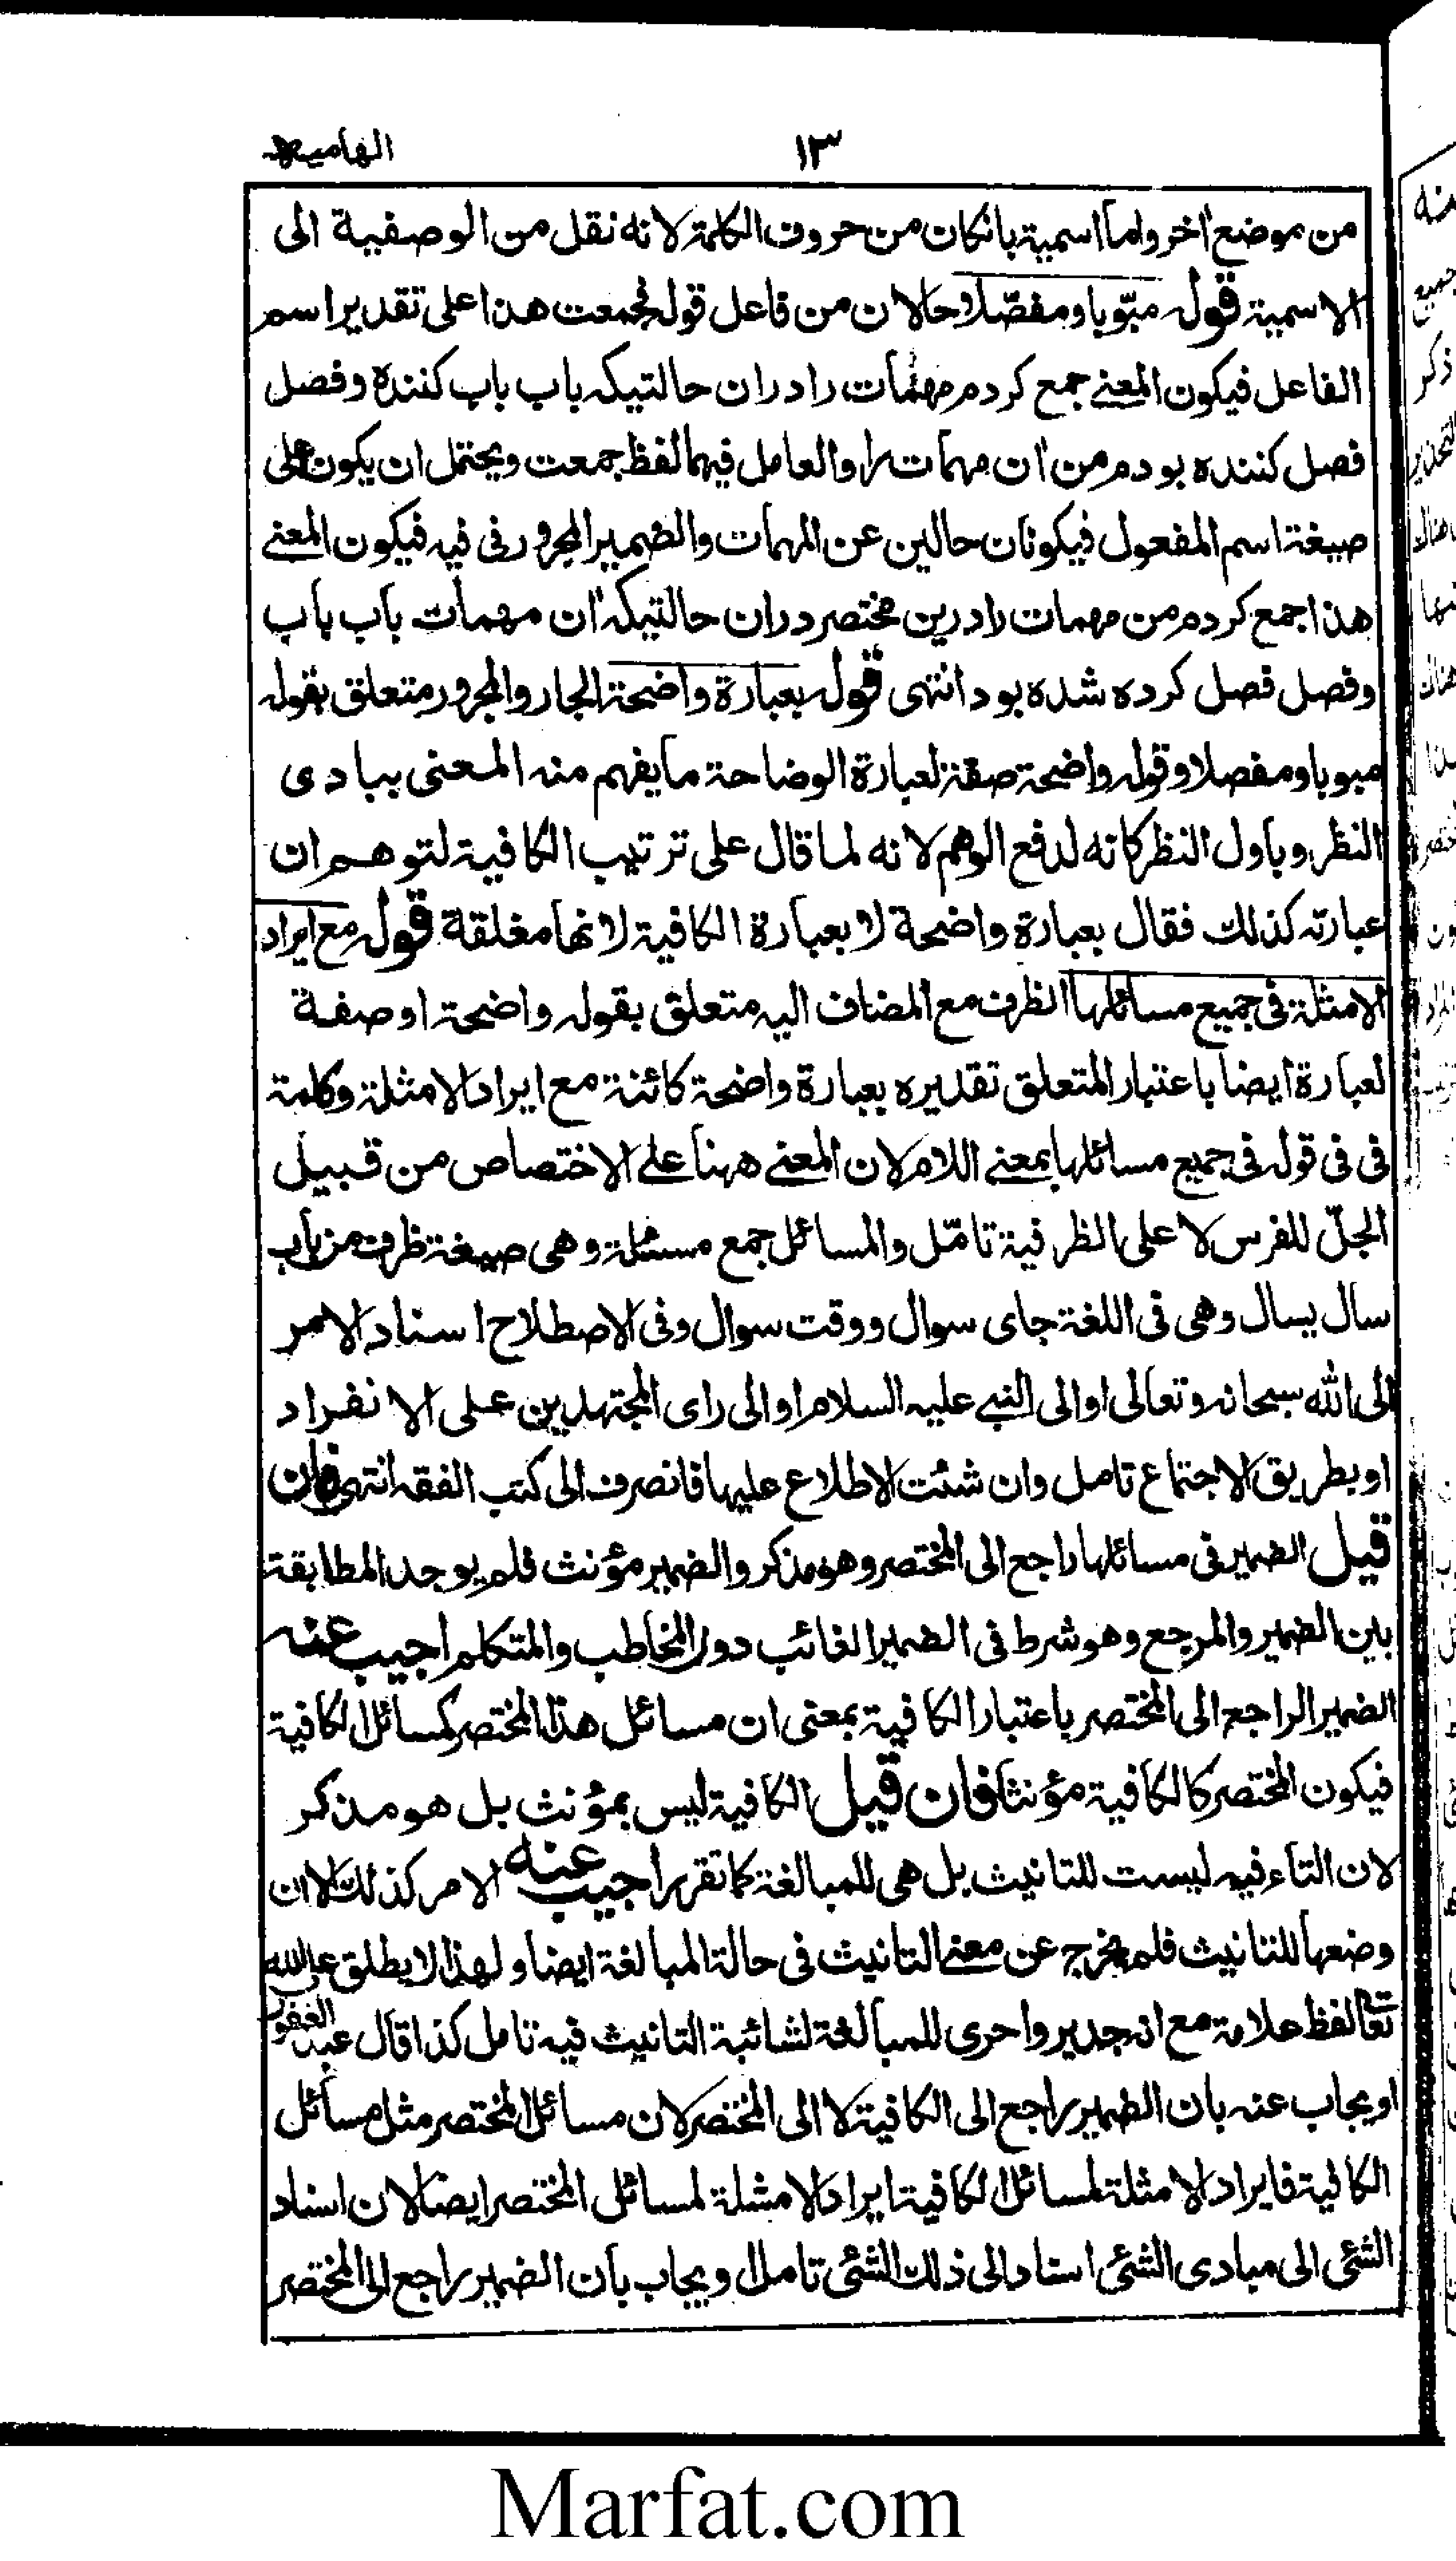 ١٣ الهاميه
من موضع اخر واما اسمية بانكان من حروف الكلمة لانه نقل من الوصفية الى
الاسمية قوله مبّوبا ومفصّلا وحالان من فاعل قوله فجمعت هذا على تقدير اسم
الفاعل فيكون المعنے جمع كردم مهمات را دران حالتيكه باب باب كننده وفصل
فصل كننده بودم من ان مهمات را والعامل فيهما لفظ جمعت ويحتمل ان يكون على
صيغة اسم المفعول فيكونان حالين عن المهمات والضمير المجرور فى فيه فيكون المعنے
هذا جمع كردم من مهمات را درين مختصر دران حالتيكه ان مهمات باب باب
وفصل فصل كرده شده بود انتهى قوله بعبارة واضحة الجار والمجرور متعلق بقوله
مبوبا ومفصلا وقوله واضحة صفة لعبارة الوضاحة ما يفهم منه المعنى ببادى
النظر وباول النظر كانه لدفع الوهم لانه لما قال على ترتيب الكافية لتوهم ان
عبارته كذلك فقال بعبارة واضحة لا بعبارة الكافية لانها مغلقة قوله مع ايراد
الامثلة فى جميع مسائلها الظرف مع المضاف اليه متعلق بقوله واضحة او صفة
لعبارة ايضا باعتبار المتعلق تقديره بعبارة واضحة كائنة مع ايراد الامثلة وكلمة
فى فى قوله فى جميع مسائلها بمعنے اللام لان المعنے ههنا علے الاختصاص من قبيل
الجلّ للفرس لا على الظرفية تامّل والمسائل جمع مسئلة وهى صيغة ظرف من باب
سال يسال وهى فى اللغة جاى سوال ووقت سوال وفى الاصطلاح اسناد الامر
الى الله سبحانه وتعالى او الى النبے عليه السلام او الى راى المجتهدين على الانفراد
او بطريق الاجتماع تامل وان شئت الاطلاع عليها فانصرف الى كتب الفقه انتهى فان
قيل الضمير فى مسائلها راجع الى المختصر وهو مذكر والضمير مؤنث فلم يوجد المطابقة
بين الضمير والمرجع وهو شرط فى الضمير الغائب دون المخاطب والمتكلم اجيب عنه
الضمير الراجع الى المختصر باعتبار الكافية بمعنى ان مسائل هذا المختصر كمسائل الكافية
فيكون المختصر كالكافية مؤنثا فان قيل الكافية ليس بمؤنث بل هو مذكر
لان التاء فيه ليست للتانيث بل هى للمبالغة كما تقرر اجيب عنه الامر كذلك الا ان
وضعها للتانيث فلم يخرج عن معنے التانيث فى حالة المبالغة ايضا ولهذا لا يطلق على الله
تعالى لفظ علامة مع انه جدير واحرى للمبالغة لشائبة التانيث فيه تامل كذا قال عبد الغفور
او يجاب عنه بان الضمير راجع الى الكافية لا الى المختصر لان مسائل المختصر مثل مسائل
الكافية فايراد الامثلة لمسائل الكافية ايراد الامثلة لمسائل المختصر ايضا لان اسناد
الشئى الى مبادى الشئى اسناد الى ذلك الشئى تامل او يجاب بان الضمير راجع الى المختصر
Marfat.com